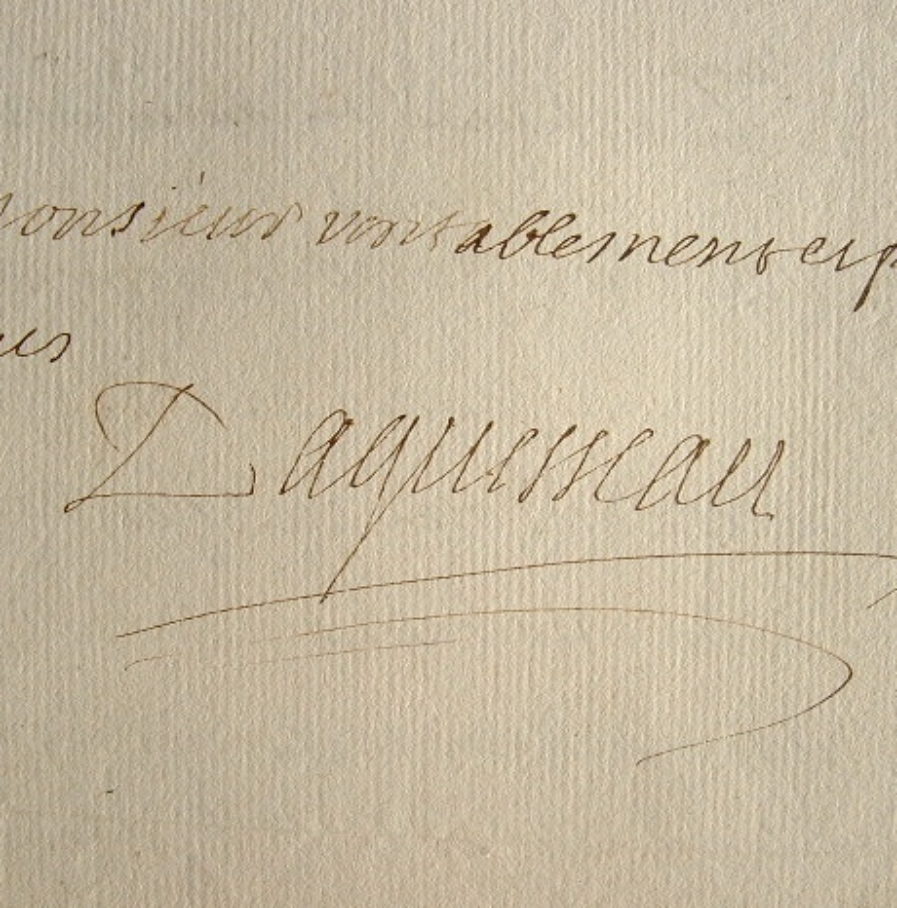 onsieur veritablement et p
us
Daguesseau